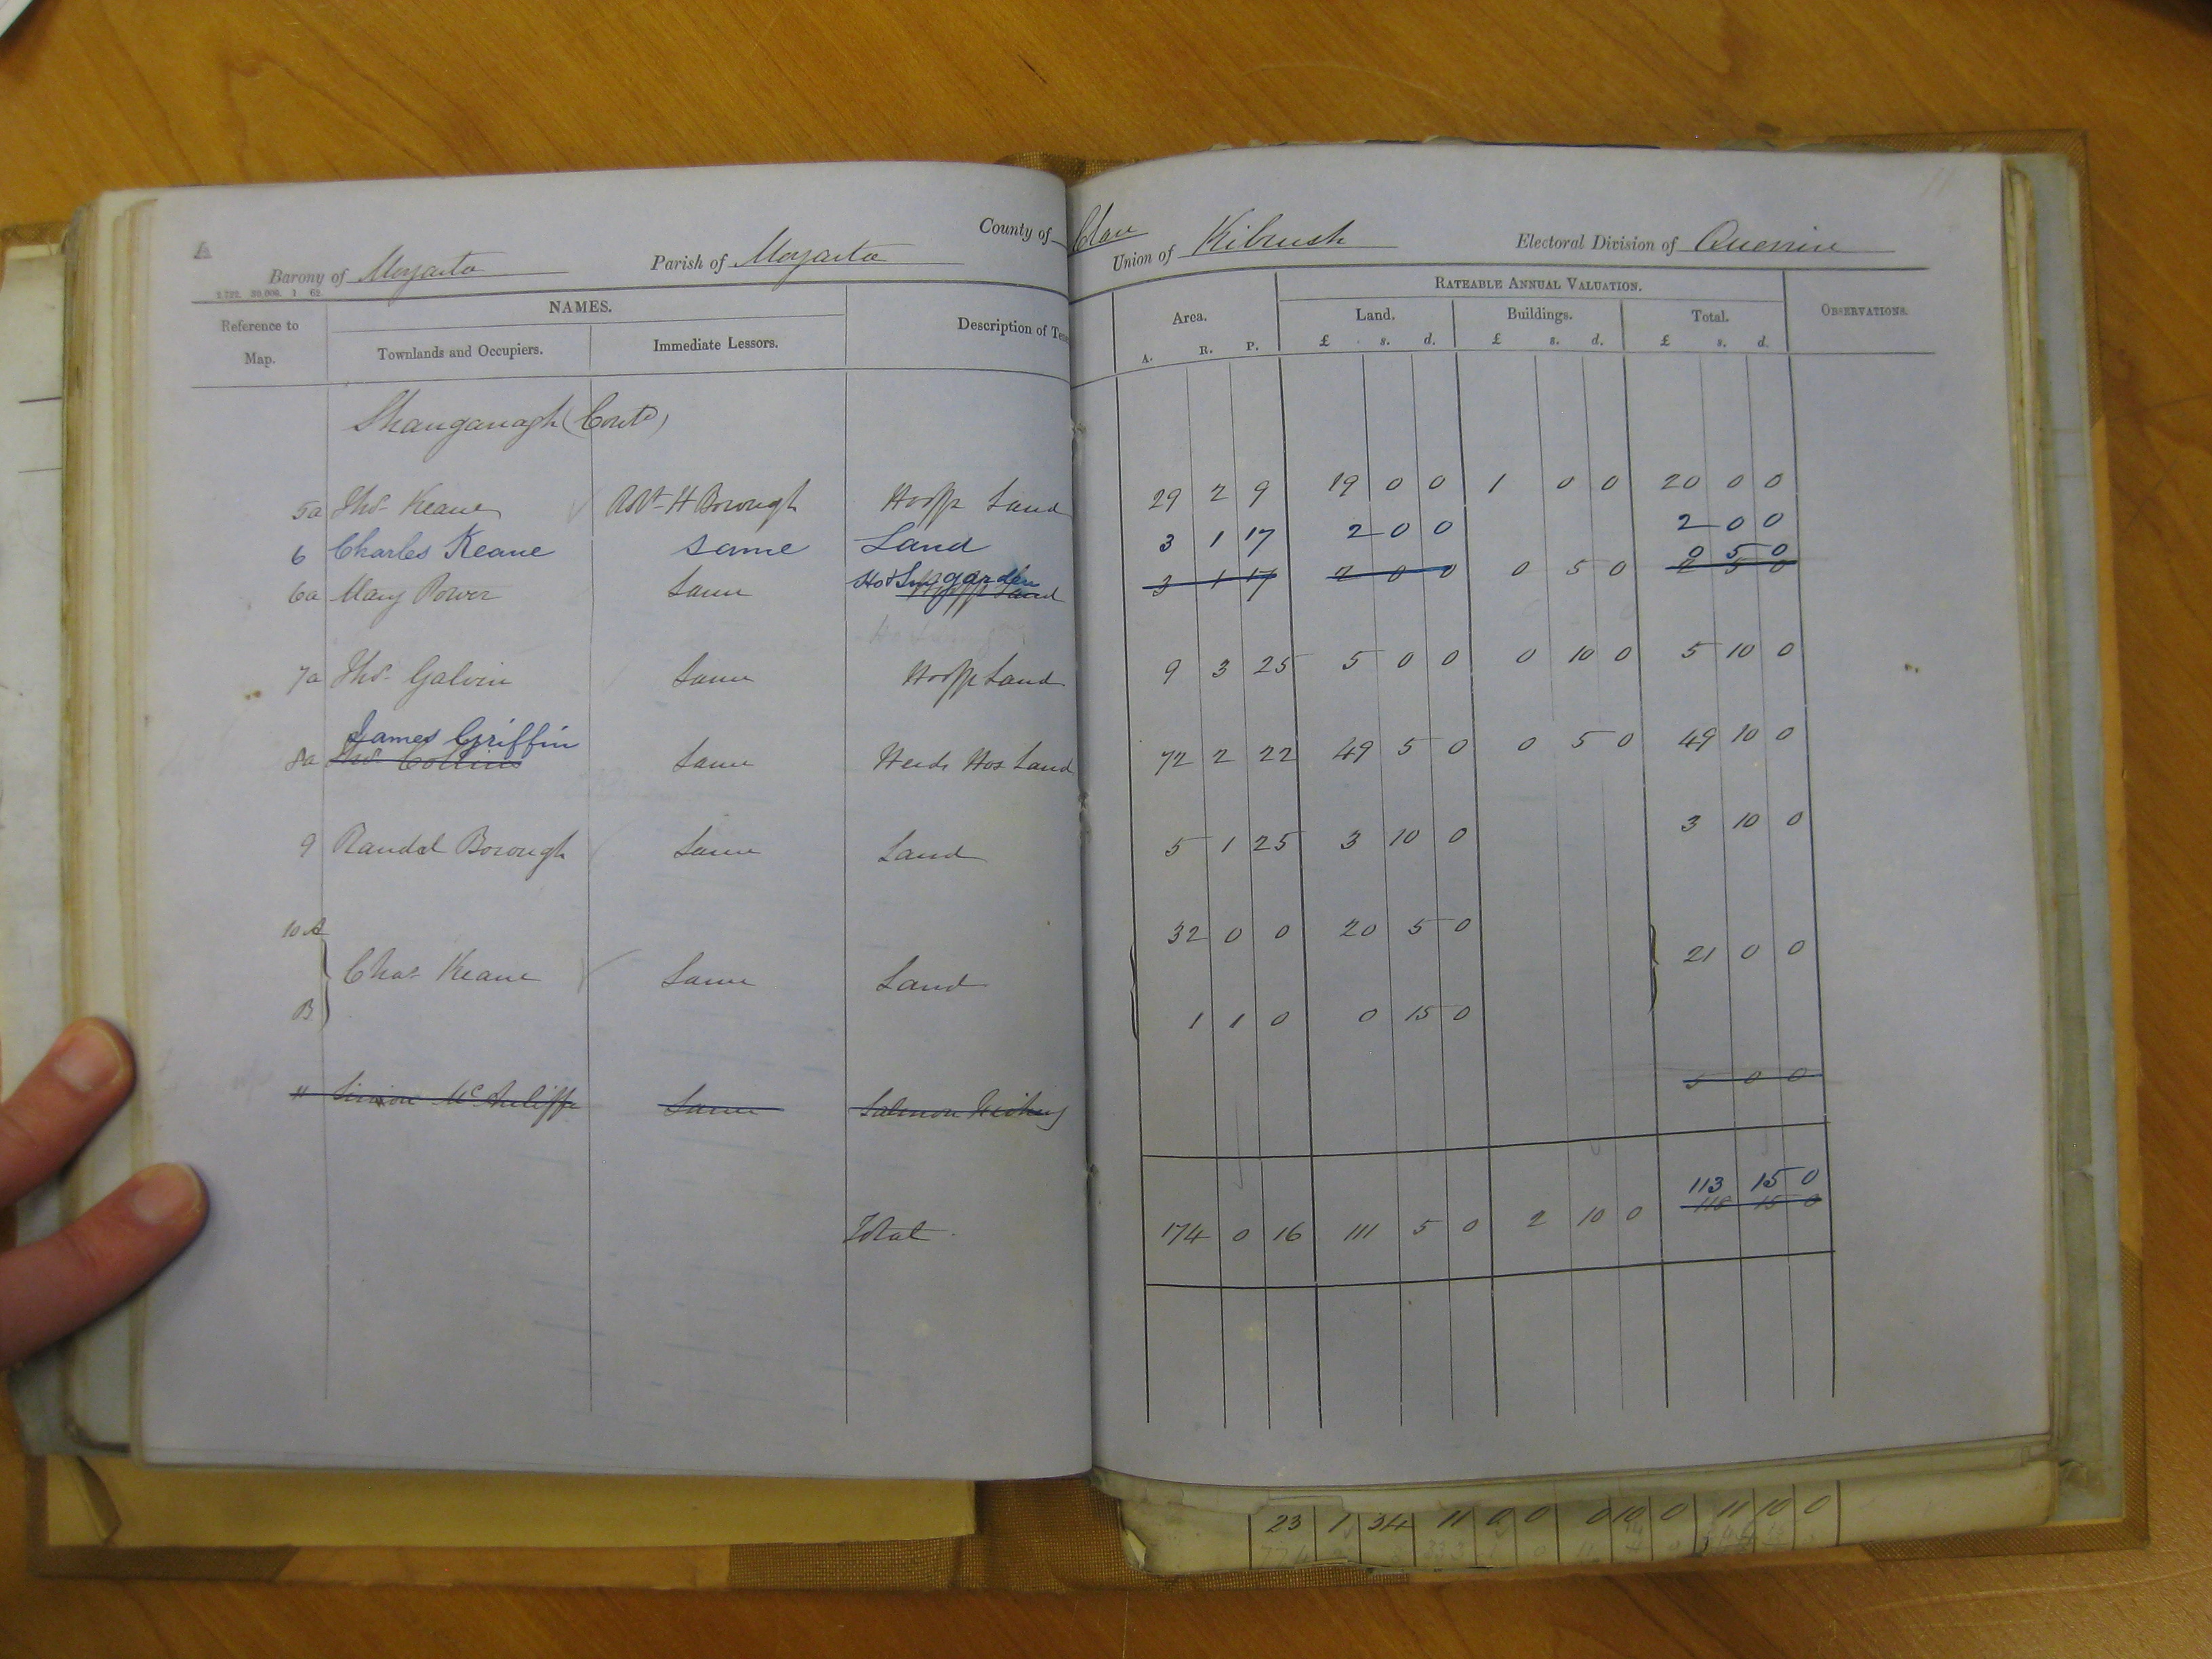 A
County of Clare
Barony of Moyarta Parish of Moyarta Union of Kilrush Electoral Division of Querrin
2.722. 30,000. 1 65.
Reference to Map. NAMES. Description of Tene Area. RATEABLE ANNUAL VALUATION. OBSERVATIONS.
Townlands and Occupiers. Immediate Lessors. Land. Buildings. Total.
A. R. P. £ s. d. £ s. d. £ s. d.
Shanganagh (Contd)
5a Thos Keane Rdt H Borough Hoffs Land 29 2 9 19 0 0 1 0 0 20 0 0
6 Charles Keane same Land 3 1 17 2 0 0 2 0 0
0 5 0
6a Mary Power Same Ho & Sm garden 3 1 17 2 0 0 0 5 0 2 5 0
7a Thos Galvin Same Hoffs Land 9 3 25 5 0 0 0 10 0 5 10 0
James Griffin
8a Thos Collins Same Herds Hos Land 72 2 22 49 5 0 0 5 0 49 10 0
9 Randal Borough Same Land 5 1 25 3 10 0 3 10 0
10 A 32 0 0 20 5 0
Chas Keane Same Land 21 0 0
B 1 1 0 0 15 0
11 Simon McAuliffe Same Salmon Fishery 5 0 0
113 15 0
Total 174 0 16 111 5 0 2 10 0 118 15 0
23 1 34 11 0 0 0 10 0 11 10 0